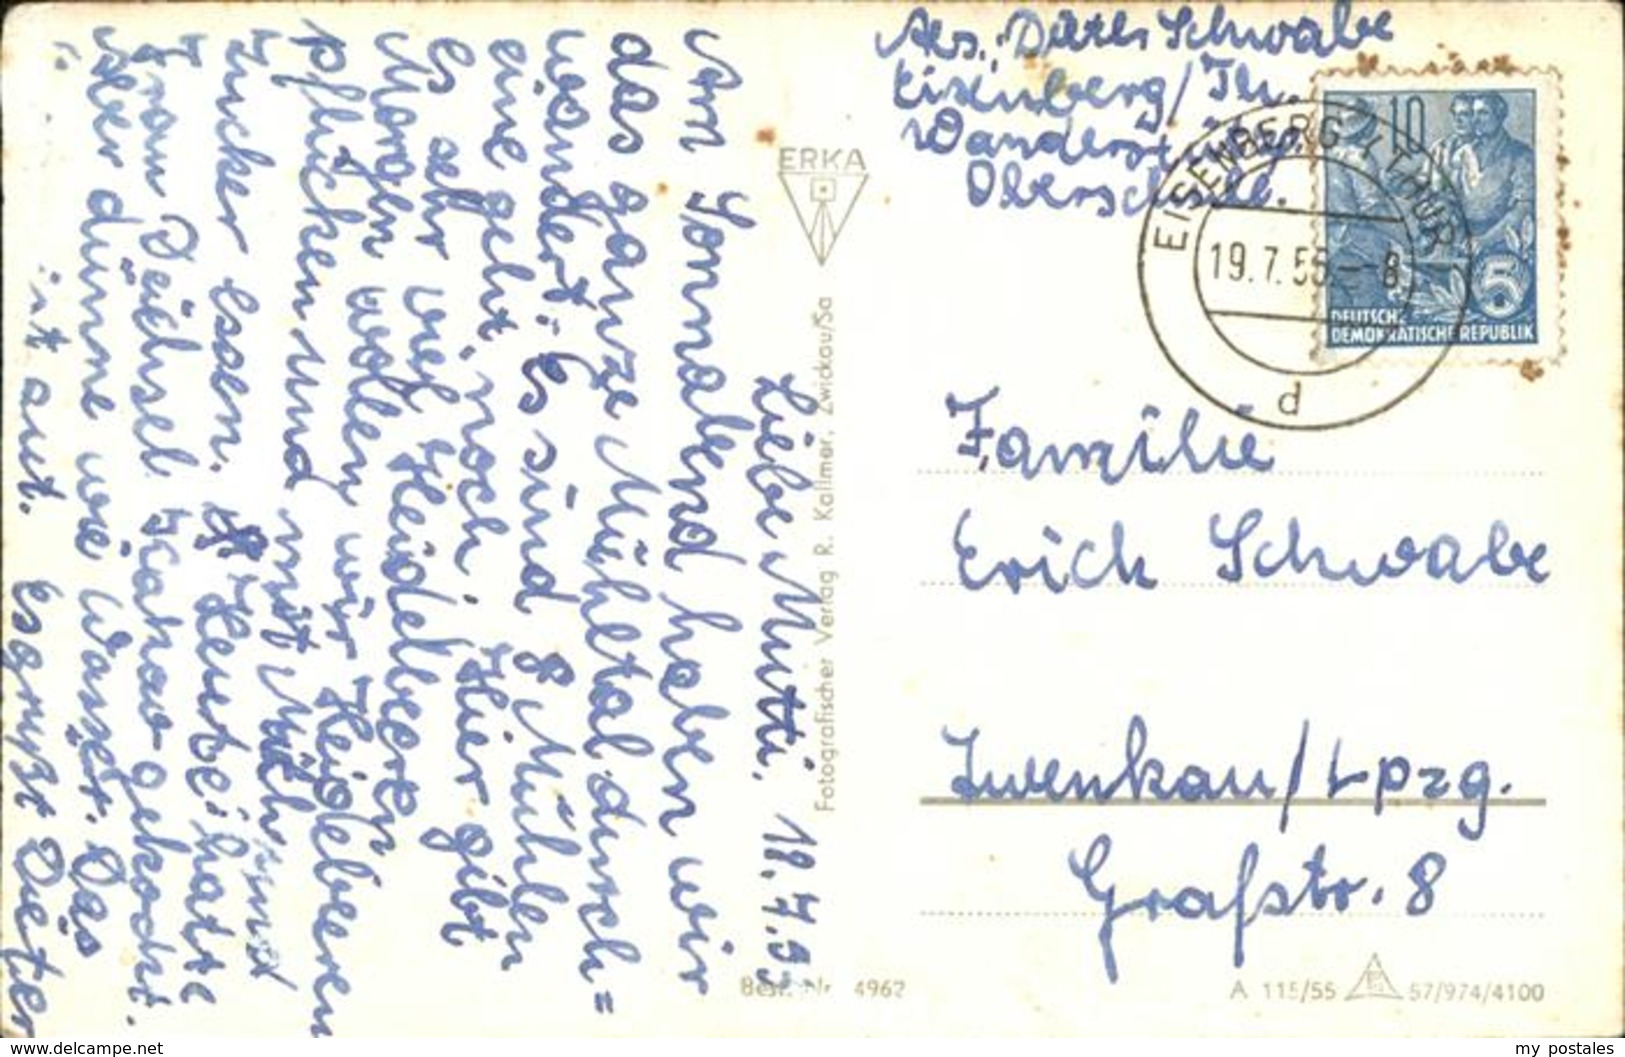 Liebe Mutti. 18.7.55
Am Sonnabend haben wir
das ganze Mühltal durch=
wandert. Es sind 8 Mühlen
eine geht noch. Hier gibt
es sehr viel Heidelbeeren
Morgen wollen wir Heidelbeeren
pflücken und mit Milch und
Zucker essen. Heute hatte
Frau Deichsel Kakao gekocht.
Der dünne wie Wasser. Das
ist aut. Es grüßt Dieter
ERKA
Fotografischer Verlag R. Kallmer, Zwickau/Sa
Best. Nr. 4962
Abs.: Dieter Schwabe
Eisenberg/Th.
Wanderst
Oberschule.
EISENBERG (THÜR)
19.7.55 – 8
d
10
5
DEUTSCHE
DEMOKRATISCHE REPUBLIK
Familie
Erich Schwabe
Zwenkau/Lpzg.
Grafstr. 8
A 115/55 57/974/4100
delcampe.net
my postales